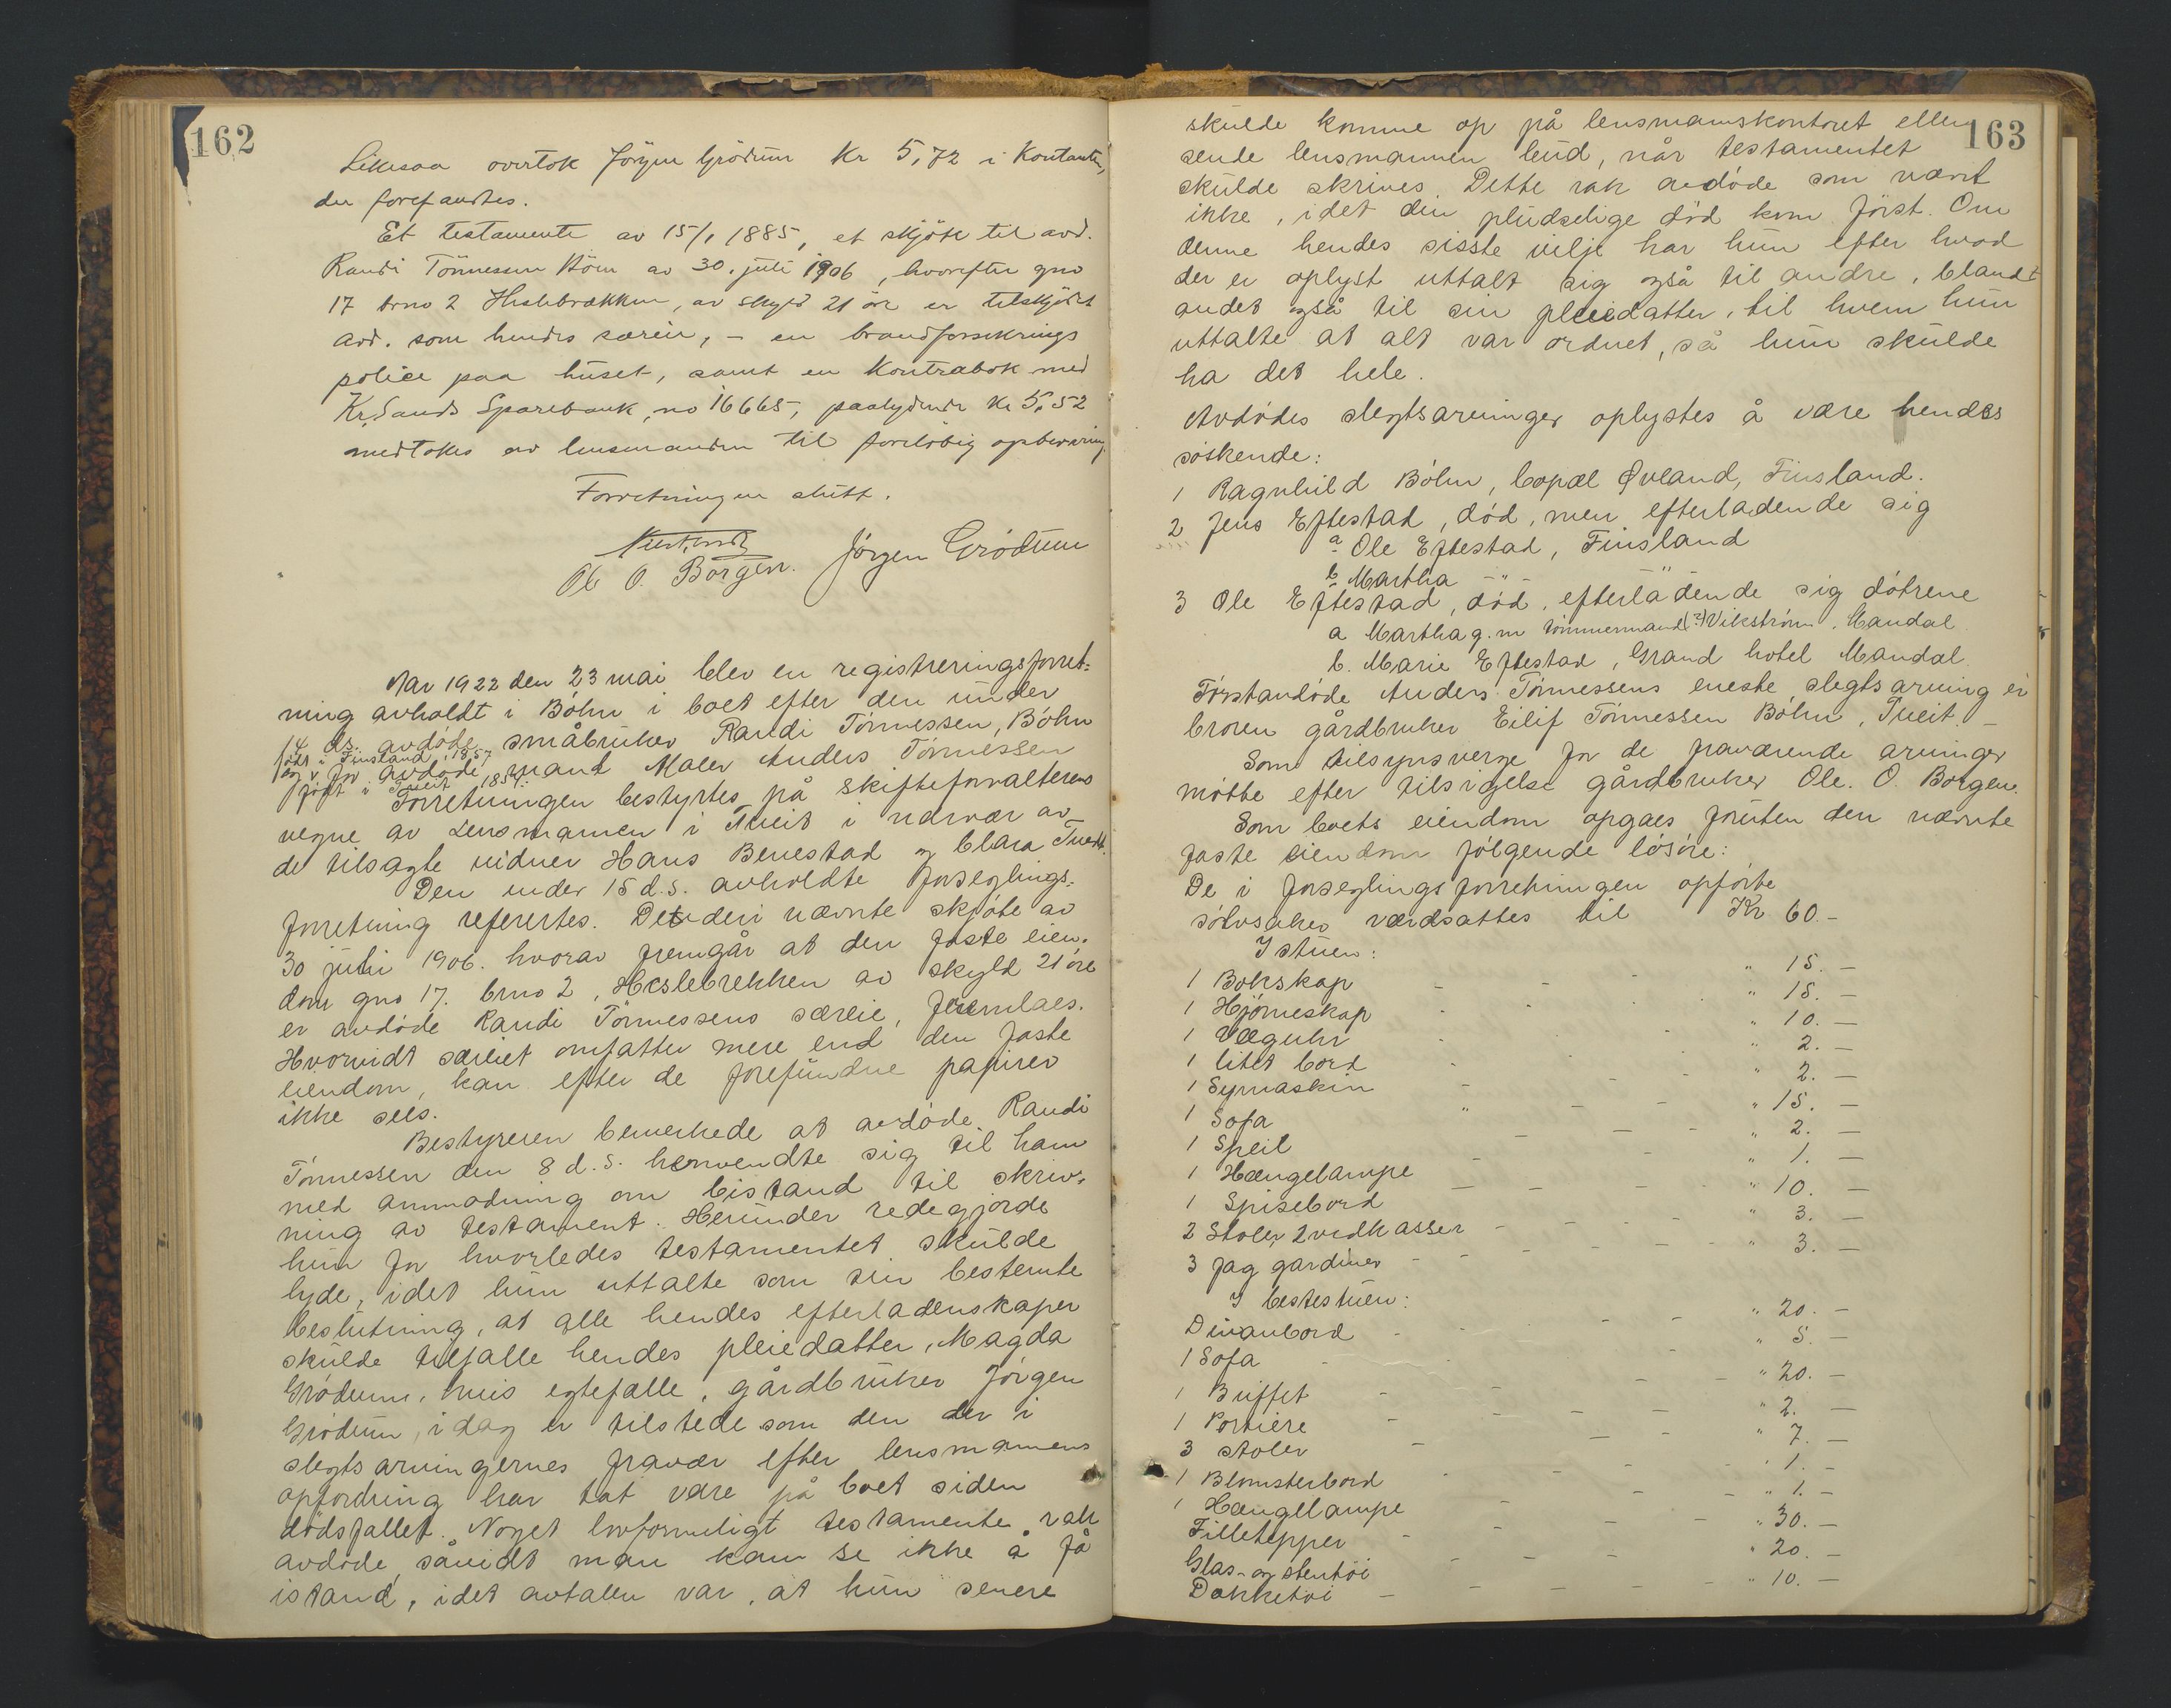 162
Likesaa overtok Jörgen Grödum Kr 5,72 i Kontanter,
der forefantes.
Et testamente av 15/1 1885, et skjöte til avd.
Randi Tönnessen Böen av 30. juli 1906, hvorefter gno
17 brno 2 Heslebrækken, av skyld 21 öre er tilskjötet
avd. som hendes særeie, – en brandforsikrings
police paa huset, samt en Kontrabok med
Kr.Sands Sparebank, no 16665, paalydende Kr 5,52
medtokes av lensmanden til foreløbig opbevaring.
Forretningen slutt.
Ole O. Borgen. Jörgen Grödum
Aar 1922 den 23 mai blev en registreringsforret-
ning avholdt i Böhn i boet efter den under
14 ds. avdöde småbruker Randi Tönnessen, Böhn
født i Finsland 1857
og v. for avdøde mand Maler Anders Tönnessen
født i Tveit 1854.
Forretningen bestyrtes på skifteforvalterens
vegne av Lensmannen i Tveit i nærvær av
de tilsagte vidner Hans Benestad og Clara Tveit.
Den under 15 d.s. avholdte forseglings-
forretning refertes. Det deri nævnte skjöte av
30 juli 1906. hvorav fremgår at den faste eien-
dom gno 17. brno 2, Heslebrekken av skyld 21 öre
er avdöde Randi Tönnessens særeie, fremlaes.
Hvorvidt særeiet omfatter mere end den faste
eiendom, kan efter de forefundne papirer
ikke sees.
Bestyreren bemerkede at avdöde Randi
Tönnessen den 8 d.s. henvendte sig til ham
med anmodning om bistand til skriv-
ning av testament. Herunder redegjorde
hun for hvorledes testamentet skulde
lyde, idet hun uttalte som sin bestemte
beslutning, at alle hendes efterladenskaper
skulde tilfalle hendes pleiedatter, Magda
Grödum, hvis egtefælle, gårdbruker Jörgen
Grödum, idag er tilstede som den der i
slegtsarvingernes fravær efter lensmannens
opfordring har tat vare på boet siden
dödsfallet. Noget lovformeligt testamente rak
avdöde, såvidt man kan se ikke å få
istand, idet avtalen var, at hun senere
163
skulde komme op på lensmannskontoret eller
sende lensmannen bud, når testamentet
skulde skrives. Dette rak avdöde som nævnt
ikke, idet den pludselige död kom först. Om
denne hendes sisste vilje har hun efter hvad
der er oplyst uttalt sig også til andre, blandt
andet også til sin pleiedatter, til hvem hun
uttalte at alt var ordnet, så hun skulde
ha det hele.
Avdödes slegtsarvinger oplystes å være hendes
söskende:
1 Ragnhild Böhn, bopæl Øvland, Finsland.
2 Jens Eftestad, död, men efterladende sig
a Ole Eftestad, Finsland
b Martha -"- "
3 Ole Eftestad, död, efterladende sig dötrene
a Martha g. m tömmermand (?) Vikström, Mandal
b. Marie Eftestad, Grand hotel Mandal.
Förstavdöde Anders Tönnessens eneste slegtsarving er
broren gårdbruker Eilif Tönnessen Böhn, Tveit. –
Som tilsynsverge for de fraværende arvinger
mötte efter tilsigelse gårdbruker Ole. O. Borgen.
Som boets eiendom opgaes foruten den nævnte
faste eiendom fölgende lösöre:
De i forseglingsforretningen opförte
sölvsaker værdsattes til Kr 60.–
I stuen:
1 Bokskap - - - " 15. –
1 Hjörneskap - - - " 15. –
1 Væguhr - - " 10. –
1 litet bord - - " 2. –
1 Symaskin - - - " 2. –
1 Sofa " - - " 15. –
1 Speil - - - " 2. –
1 Hængelampe - - - " 1. –
1 Spisebord - - - - " 10. –
2 Stoler, 2 vedkasser - - - - " 3. –
3 fag gardiner - - - - " 3. –
I bestestuen:
Divanbord - - - - " 20. –
1 Sofa - - - " 5. –
1 Buffet - - - - " 20. –
1 Portiere - - - - " 2. –
3 stoler - - - " 7. –
1 Blomsterbord - - - " 1. –
1 Hængelampe - - - " 1. –
Filletepper - - - - " 30. –
Glas- og stentöi - - - " 20. –
Dekketöi - - - - " 10. –